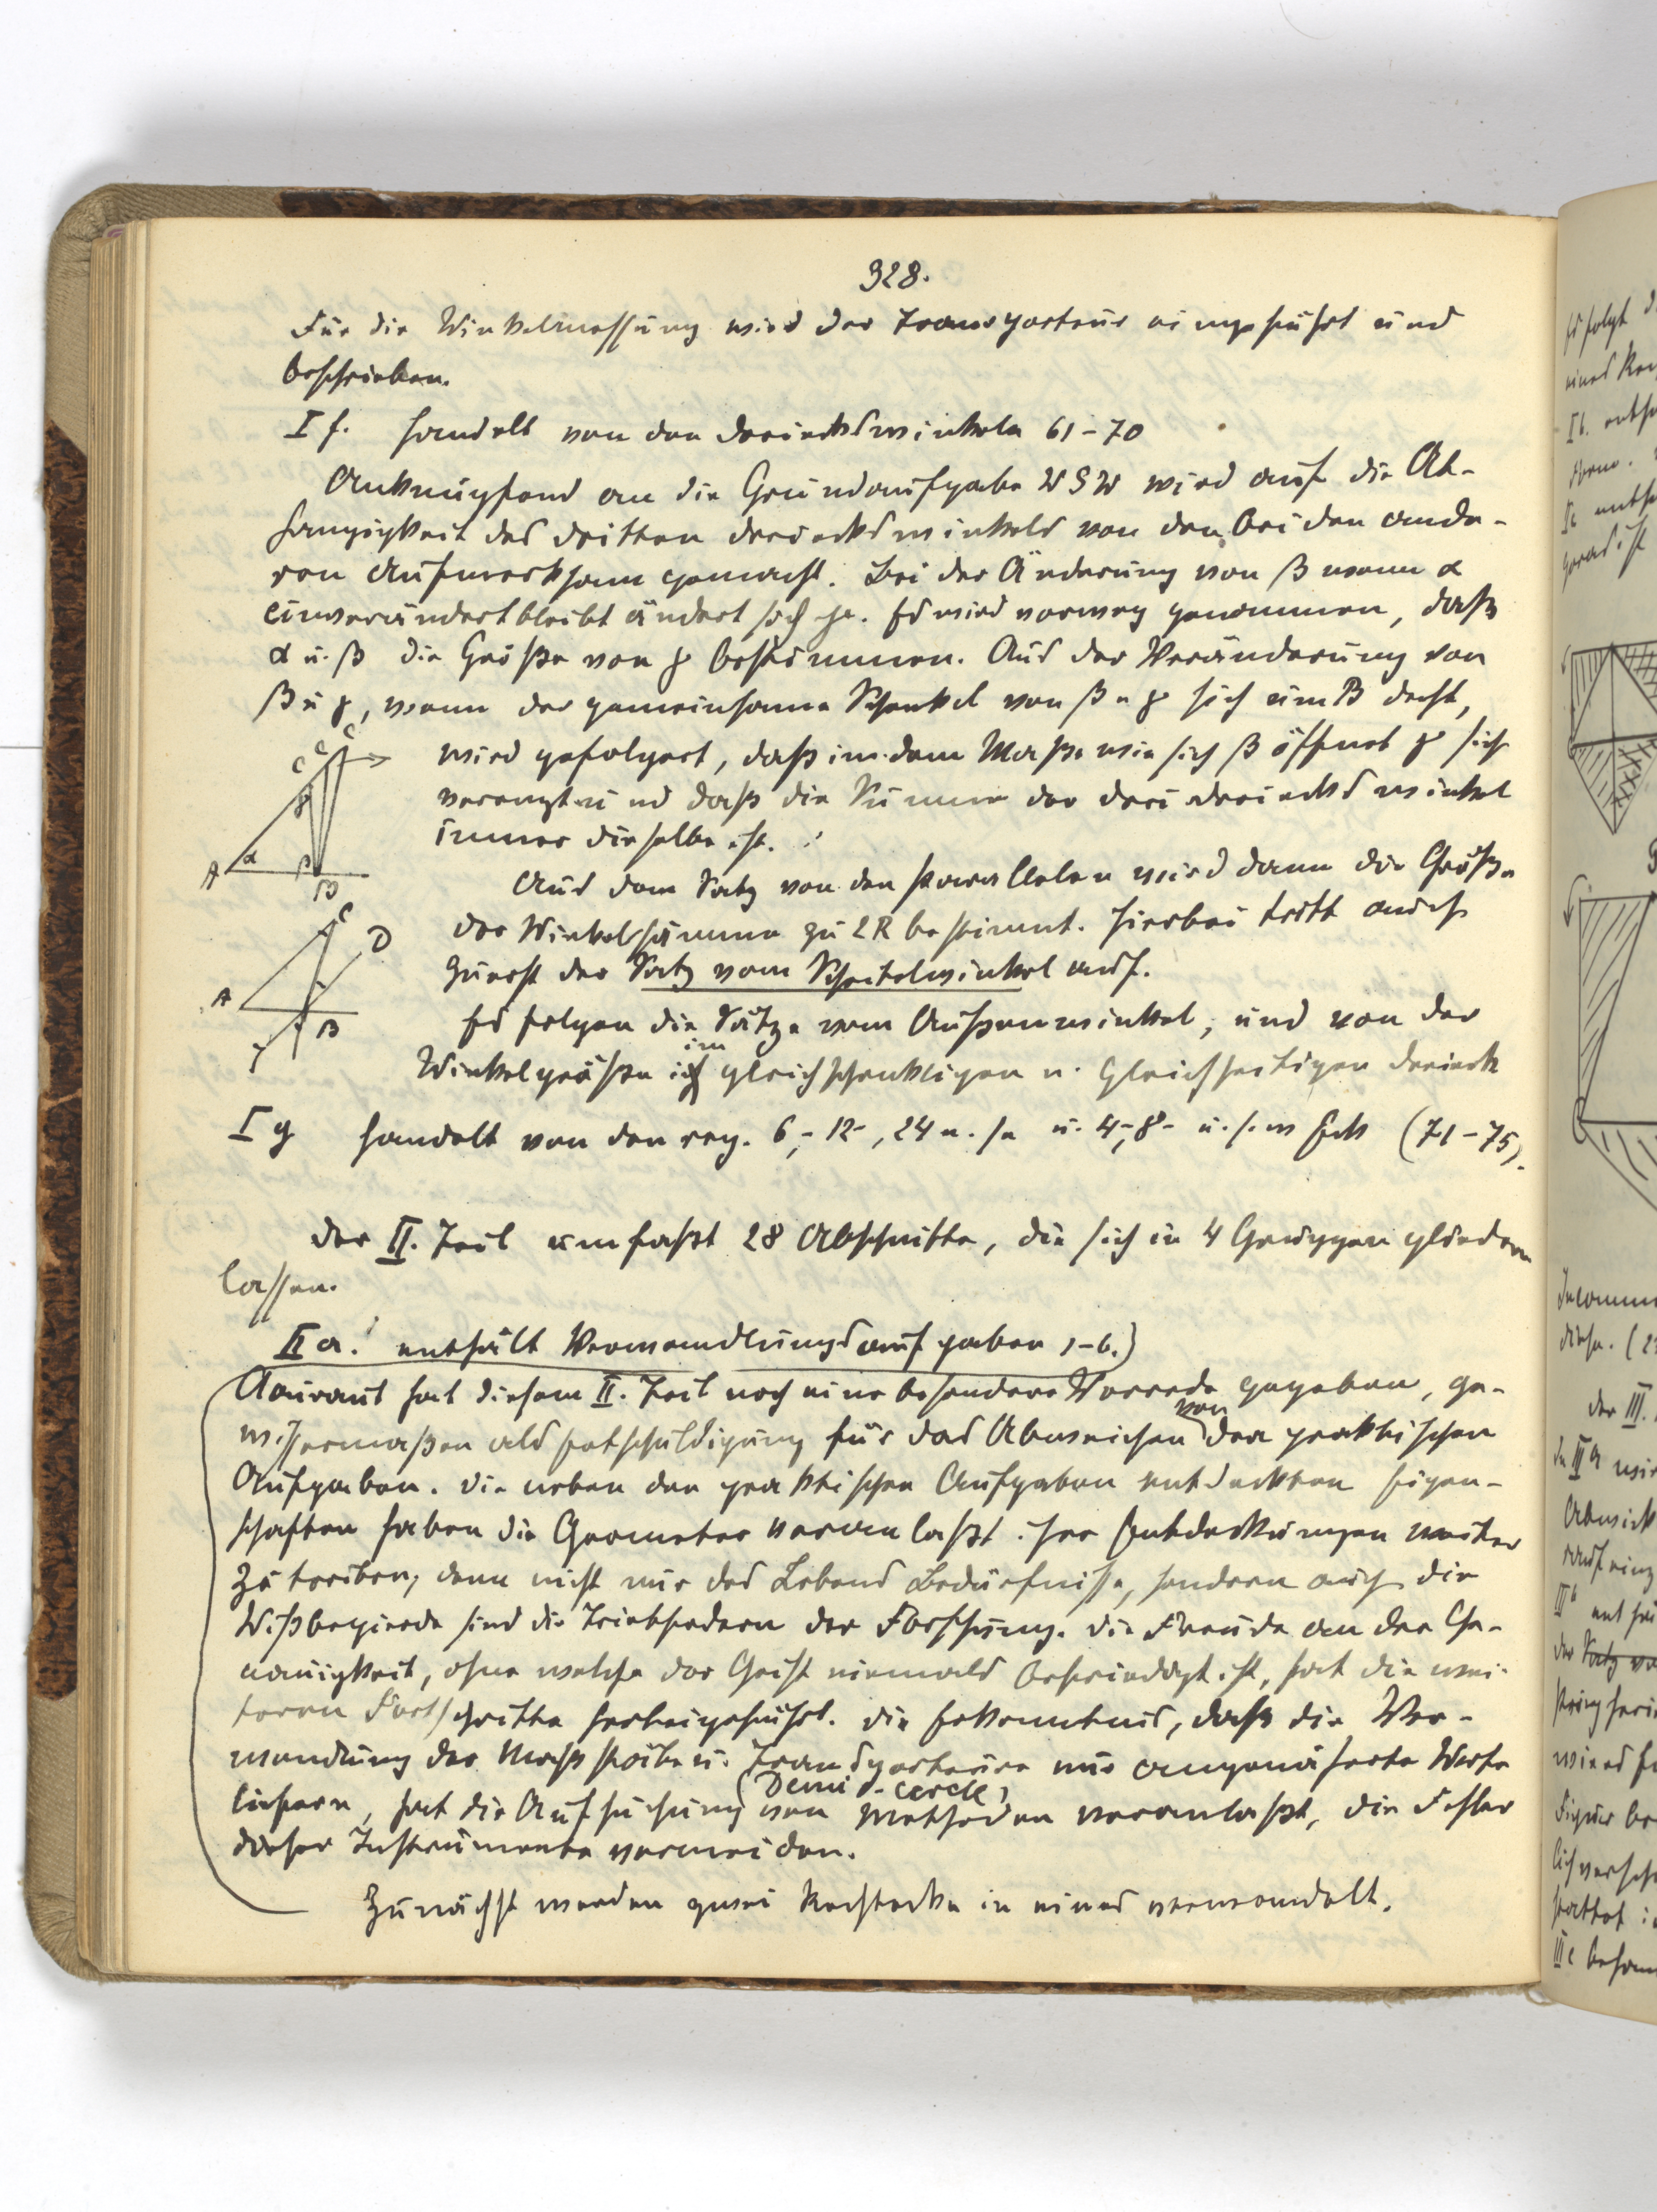 328.
Für die Winkelmessung wird der Transporteur eingeführt und
beschrieben.
I f. handelt von den Dreieckswinkeln 61–70
Anknüpfend an die Grundaufgabe WSW wird auf die Ab-
hängigkeit des dritten Dreieckswinkels von den beiden ande-
ren aufmerksam gemacht. Bei der Änderung von β wenn α
unverändert bleibt ändert sich γ. Es wird vorweg genommen, daß
α u. β die Größe von γ bestimmen. Aus der Veränderung von
β u γ, wenn der gemeinsame Schenkel von β u γ sich um B dreht,
wird gefolgert, daß in dem Maße wie sich β öffnet γ sich
verengt und daß die Summe der drei Dreieckswinkel
immer dieselbe ist.
C C C
γ
A α β
B
Aus dem Satz von den Parallelen wird dann die Größe
der Winkelsumme zu 2R bestimmt. Hierbei tritt auch
zuerst der Satz vom Scheitelwinkel auf.
C
D
A
B
Es folgen die Sätze vom Außenwinkel, und von der
Winkelgröße im gleichschenkligen u. gleichseitigen Dreieck
I g handelt von den reg. 6-, 12-, 24 u. s. u. 4-, 8- u. s. w Eck (71–75).
Der II. Teil umfaßt 28 Abschnitte, die sich in 4 Gruppen gliedern
lassen.
II a. enthält Verwandlungsaufgaben 1–6.)
Clairaut hat diesem II. Teil noch eine besondere Vorrede gegeben, ge-
wissermaßen als Entschuldigung für das Abweichen von den praktischen
Aufgaben. Die neben den praktischen Aufgaben entdeckten Eigen-
schaften haben die Geometer veranlaßt ihre Entdeckungen weiter
zu treiben, denn nicht nur des Lebens Bedürfnisse, sondern auch die
Wißbegierde sind die Triebfedern der Forschung. Die Freude an der Ge-
nauigkeit, ohne welche der Geist niemals befriedigt ist, hat die wei-
teren Fortschritte herbeigeführt. Die Erkenntnis, daß die Ver-
wendung der Maßstäbe u. Transporteure nur angenäherte Werte
(Demi-cercle)
liefern, hat die Aufsuchung von Methoden veranlaßt, die Fehler
dieser Instrumente vermeiden.
Zunächst werden zwei Rechtecke in eines verwandelt.